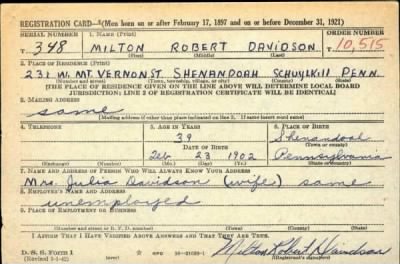 REGISTRATION CARD—(Men born on or after February 17, 1897 and on or before December 31, 1921)
SERIAL NUMBER 1. NAME (Print) ORDER NUMBER
T 348 MILTON ROBERT DAVIDSON T 10,515
(First) (Middle) (Last)
2. PLACE OF RESIDENCE (Print)
231 W. MT. VERNON ST. SHENANDOAH SCHUYLKILL PENN.
(Number and street) (Town, township, village, or city) (County) (State)
[THE PLACE OF RESIDENCE GIVEN ON THE LINE ABOVE WILL DETERMINE LOCAL BOARD
JURISDICTION; LINE 2 OF REGISTRATION CERTIFICATE WILL BE IDENTICAL]
3. MAILING ADDRESS
Same
[Mailing address if other than place indicated on line 2. If same insert word same]
4. TELEPHONE 5. AGE IN YEARS 6. PLACE OF BIRTH
39 Shenandoah
DATE OF BIRTH (Town or county)
Feb 23 1902 Pennsylvania
(Exchange) (Number) (Mo.) (Day) (Yr.) (State or country)
7. NAME AND ADDRESS OF PERSON WHO WILL ALWAYS KNOW YOUR ADDRESS
Mrs. Julia Davidson (wife) same
8. EMPLOYER'S NAME AND ADDRESS
unemployed
9. PLACE OF EMPLOYMENT OR BUSINESS
(Number and street or R. F. D. number) (Town) (County) (State)
I AFFIRM THAT I HAVE VERIFIED ABOVE ANSWERS AND THAT THEY ARE TRUE.
D. S. S. Form 1 GPO 16-21630-1 Milton Robert Davidson